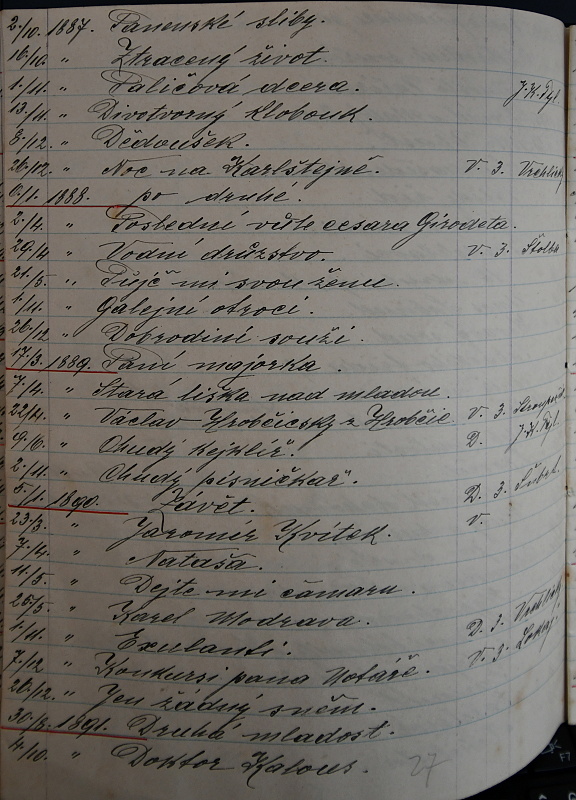 2./10. 1887. Panenské sliby.
16./10. " Ztracený život.
1./11. " Paličova dcera. J.K. Tyl.
13./11. " Divotvorný klobouk.
8./12. " Dědoušek.
26./12. " Noc na Karlštejně. V. 3. Vrchlický
6./1. 1888. po druhé.
2./4. " Poslední vůle cesara Girodeta.
29./4 " Vodní družstvo. V. 3. Štolba
21./5. " Půjč mi svou ženu.
1./11. " Galejní otroci.
26./12 " Dobrodiní souží.
17./3. 1889. Paní majorka.
7./4. " Stará liška nad mladou.
22/4. " Václav Hrobčický z Hrobčic V. 3. Stroupež.
9./6. " Chudý kejklíř. D. J.K. Tyl.
2./11. " Chudý písničkář.
5./1. 1890. Závět. D. 3. Šubrt.
23./3. " Jaromír Kvítek. V.
7./4. " Nataša.
11./5. " Dejte mi čamaru.
25/5. " Karel Modrava.
1/11. " Exulanti. D. 3. Vrchlický
7./12 " Konkursi pana Notáře. V. 3.
26./12. " Jen žádný sněm.
30./3. 1891. Druhá mladost.
4./10. " Doktor Kalous.
27